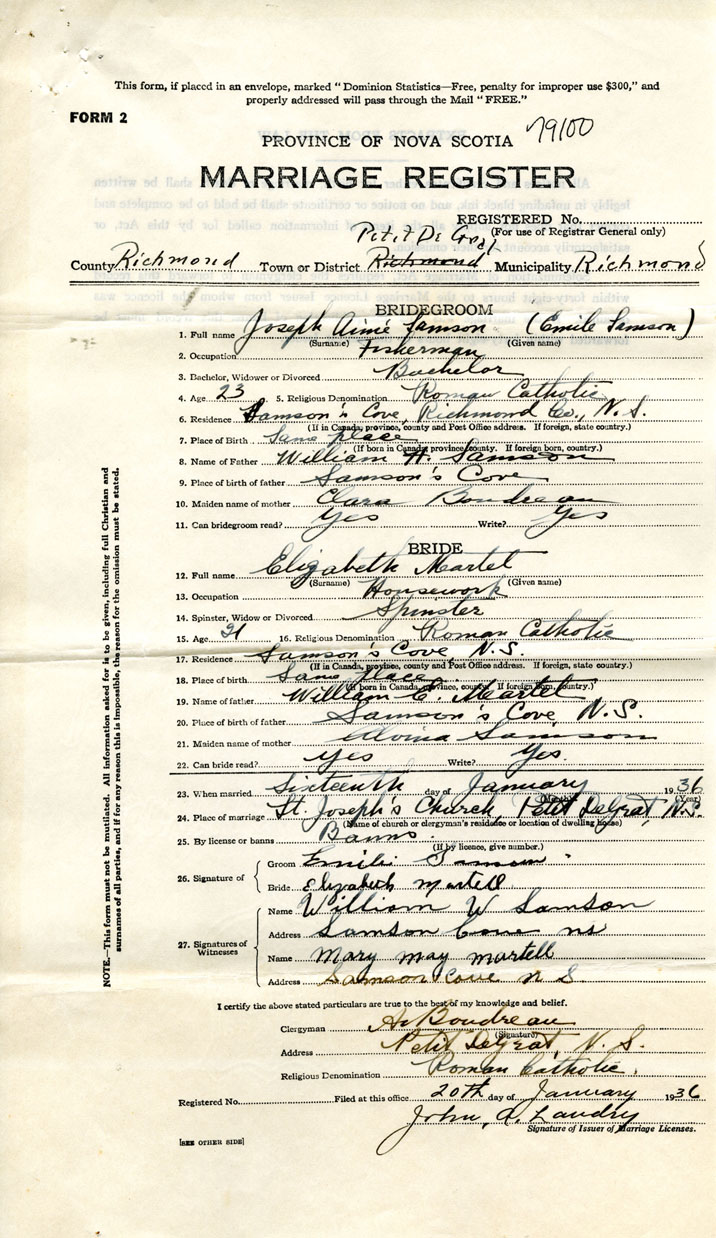 This form, if placed in an envelope, marked "Dominion Statistics—Free, penalty for improper use $300," and
properly addressed will pass through the Mail "FREE."
FORM 2
79100
PROVINCE OF NOVA SCOTIA
MARRIAGE REGISTER
REGISTERED No.
(For use of Registrar General only)
Petit De Grat
County Richmond Town or District Richmond Municipality Richmond
BRIDEGROOM
1. Full name Joseph Aimé Samson (Emile Samson)
(Surname) (Given name)
2. Occupation Fisherman
3. Bachelor, Widower or Divorced Bachelor
4. Age 23 5. Religious Denomination Roman Catholic
6. Residence Samson's Cove, Richmond Co., N.S.
(If in Canada, province, county and Post Office address. If foreign, state country.)
7. Place of Birth Same place
(If born in Canada, province, county. If foreign born, country.)
8. Name of Father William H. Samson
9. Place of birth of father Samson's Cove
10. Maiden name of mother Clara Boudreau
11. Can bridegroom read? Yes Write? Yes
BRIDE
12. Full name Elizabeth Martet
(Surname) (Given name)
13. Occupation Housework
14. Spinster, Widow or Divorced Spinster
15. Age 21 16. Religious Denomination Roman Catholic
17. Residence Samson's Cove N.S.
(If in Canada, province, county and Post Office address. If foreign, state country.)
18. Place of birth Same place
(If born in Canada, province, county. If foreign born, country.)
19. Name of father William C. Martet
20. Place of birth of father Samson's Cove, N.S.
21. Maiden name of mother Samson
22. Can bride read? Yes Write? Yes.
23. When married Sixteenth day of January 1936
(Month) (Year)
24. Place of marriage St. Joseph's Church, Petit DeGrat, N.S.
(Name of church or clergyman's residence or location of dwelling house)
25. By license or banns Banns.
(If by licence, give number.)
26. Signature of
Groom Emile Samson
Bride Elizabeth Martell
27. Signatures of Witnesses
Name William W Samson
Address Samson Cove ns
Name Mary may martell
Address Samson Cove n S
I certify the above stated particulars are true to the best of my knowledge and belief.
Clergyman A. Boudreau
(Signature)
Address Petit DeGrat, N. S.
Religious Denomination Roman Catholic.
Registered No. Filed at this office 20th day of January 1936
John, A. Landry
Signature of Issuer of Marriage Licenses.
[SEE OTHER SIDE]
NOTE.—This form must not be mutilated. All information asked for is to be given, including full Christian and
surnames of all parties, and if for any reason this is impossible, the reason for the omission must be stated.